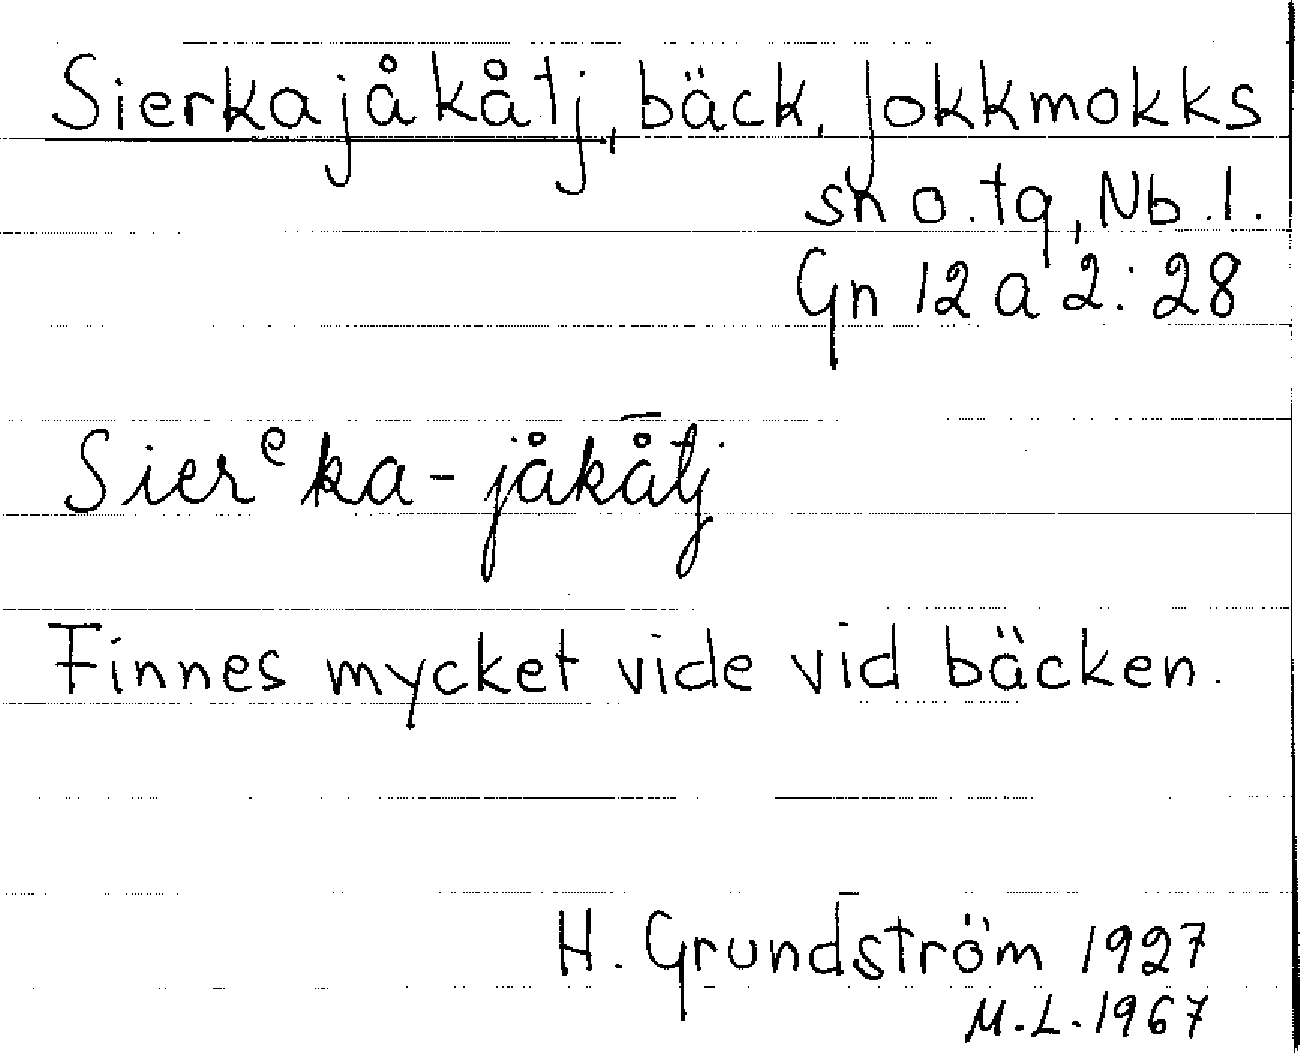 Sierkajåkåtj, bäck, Jokkmokks
sn o. tg, Nb. l.
Gn 12 a 2:28
Sierᵉka-jåkå̄tj
Finnes mycket vide vid bäcken.
H. Grundström 1927
M.L. 1967